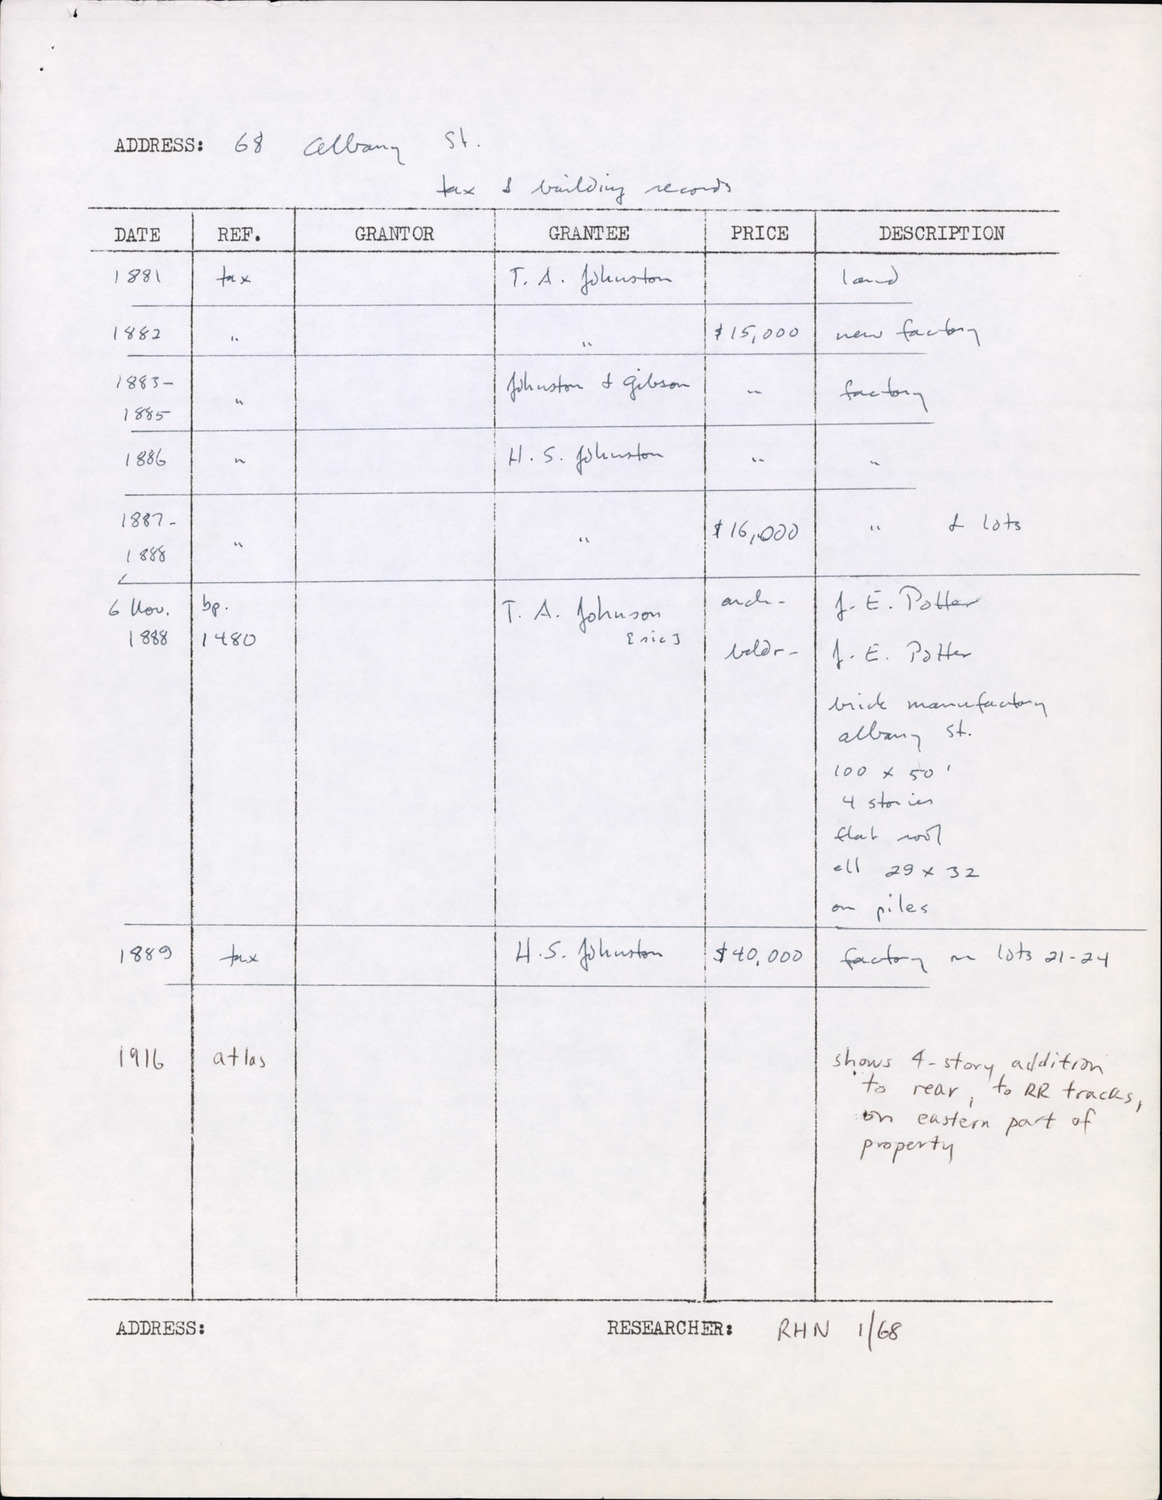 ADDRESS: 68 Albany St.
tax & building records
DATE REF. GRANTOR GRANTEE PRICE DESCRIPTION
1881 tax T. A. Johnston land
1882 " " $15,000 new factory
1883-
1885 " Johnston & Gibson " factory
1886 " H. S. Johnston " "
1887-
1888 " " $16,000 " & lots
6 Nov. bp. T. A. Johnson arch- J. E. Potter
1888 1480 [sic] bldr- J. E. Potter
brick manufactory
Albany St.
100 x 50'
4 stories
flat roof
ell 29 x 32
on piles
1889 tax H.S. Johnston $40,000 factory on lots 21-24
1916 atlas shows 4-story addition
to rear, to RR tracks,
on eastern part of
property
ADDRESS: RESEARCHER: RHN 1/68